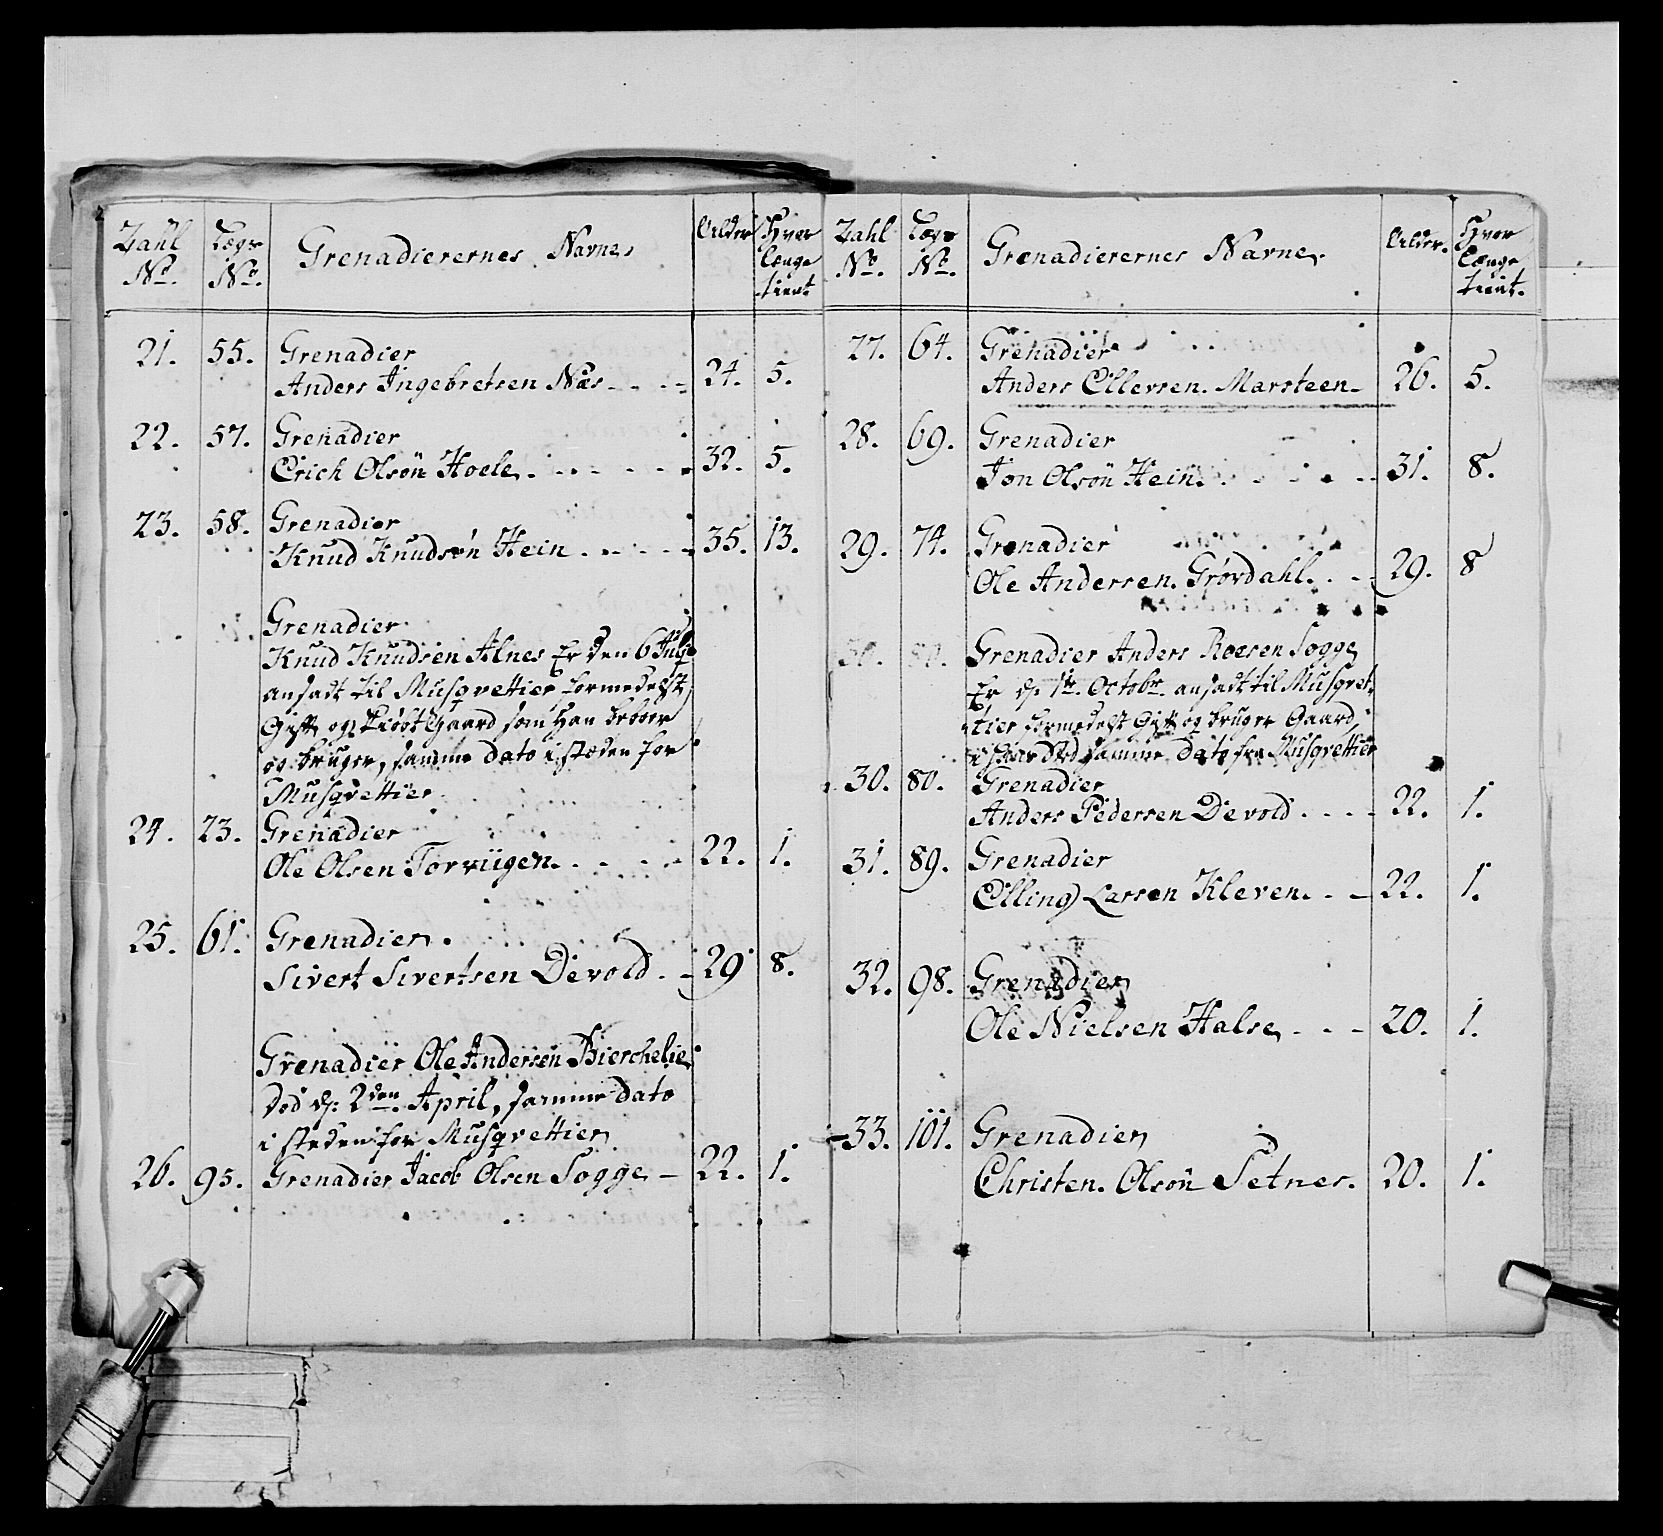 Zahl No. Lægs No. Grenadierernes Navne Alder Hvor længe tient
21. 55. Grenadier
Anders Ingebretsen Næs 24. 5.
22. 57. Grenadier
Erich Olsön Hoele 32. 5.
23. 58. Grenadier
Knud Knudsön Hein 35. 13.
Grenadier
Knud Knudsen Alnes Er den 6 July
ansadt til Musqvettier formedelst
Gift og Kiöbt Gaard som Han beboer
og bruger, samme dato i steden for
Musqvettier
24. 23. Grenadier
Ole Olsen Torviigen 22. 1.
25. 61. Grenadier
Sivert Sivertsen Devold 29 8.
Grenadier Ole Andersen Bierchelie
död d: 2den April, samme dato
i steden for Musqvettier
26. 95. Grenadier Jacob Olsen Sogge 22. 1.
Zahl No. Lægs No. Grenadierernes Navne Alder. Hvor Længe tient.
27. 64. Grenadier
Anders Ellevsen Marsteen 26. 5.
28. 69. Grenadier
Jon Olsön Hein 31. 8.
29. 74. Grenadier
Ole Andersen Grövdahl 29. 8
30. 80. Grenadier Anders Roesen Sogge
Er d: 1te Octobr. ansadt til Musqvet-
tier formedelst Gift og bruger Gaard,
samme Dato fra Musqvettier
30. 80. Grenadier
Anders Pedersen Devold 22. 1.
31. 89. Grenadier
Elling Larsen Kleven 22. 1.
32. 98. Grenadier
Ole Nielsen Halse 20. 1.
33. 101. Grenadier
Christen Olsön Setnes. 20. 1.